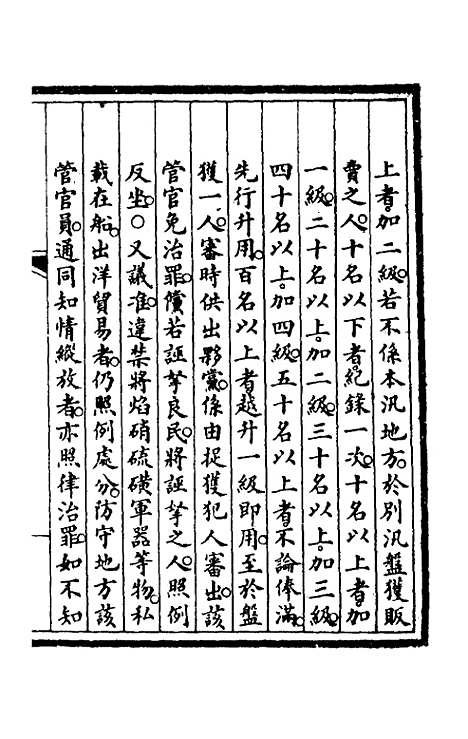 上者加二級若不係本汛地方於別汛盤獲販
賣之人十名以下者紀錄一次十名以上者加
一級二十名以上加二級三十名以上加三級
四十名以上加四級五十名以上者不論俸滿
先行升用百名以上者越升一級即用至於盤
獲一人審時供出夥黨係由捉獲犯人審出該
管官免治罪儻若誣拏良民將誣拏之人照例
反坐○又議准違禁將焰硝硫磺軍器等物私
載在船出洋貿易者仍照例處分防守地方該
管官員通同知情縱放者亦照律治罪如不知